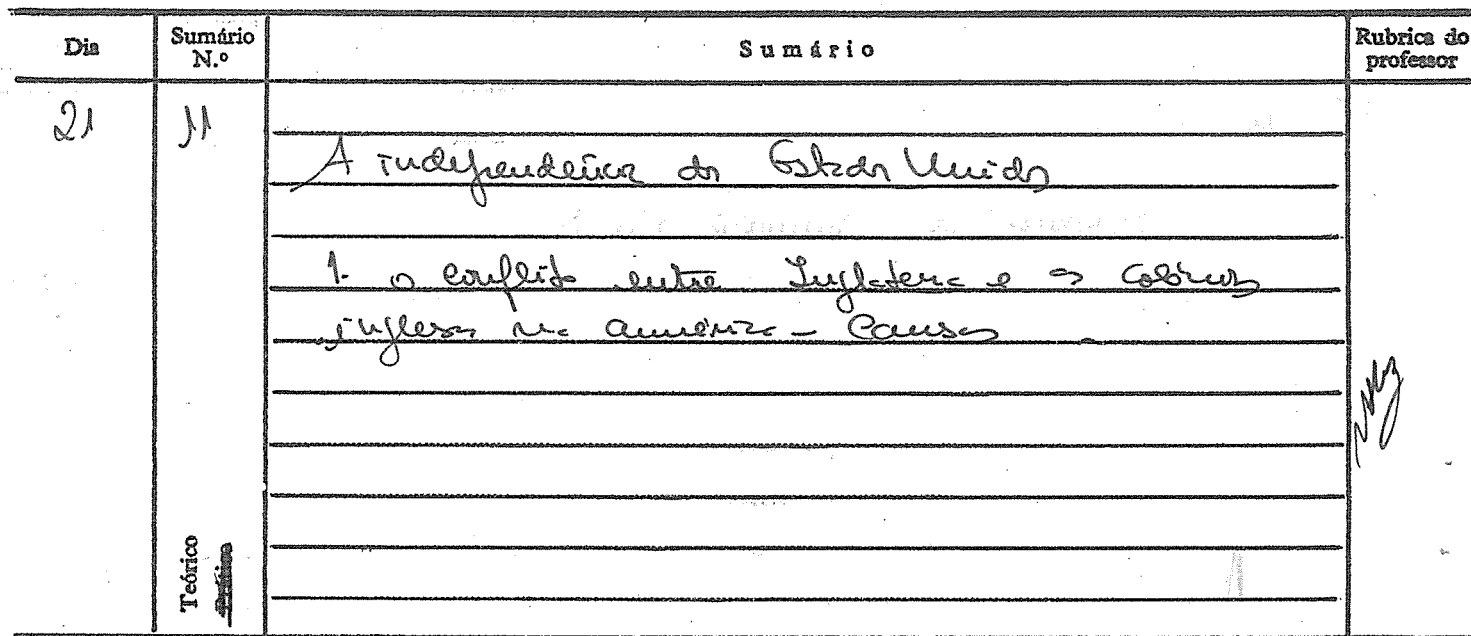 Dia
Sumário N.º
Sumário
Rubrica do professor
21
11
A independência dos Estados Unidos
1. o conflito entre Inglaterra e as colónias
inglesas na América - Causas.
Teórico
Prático